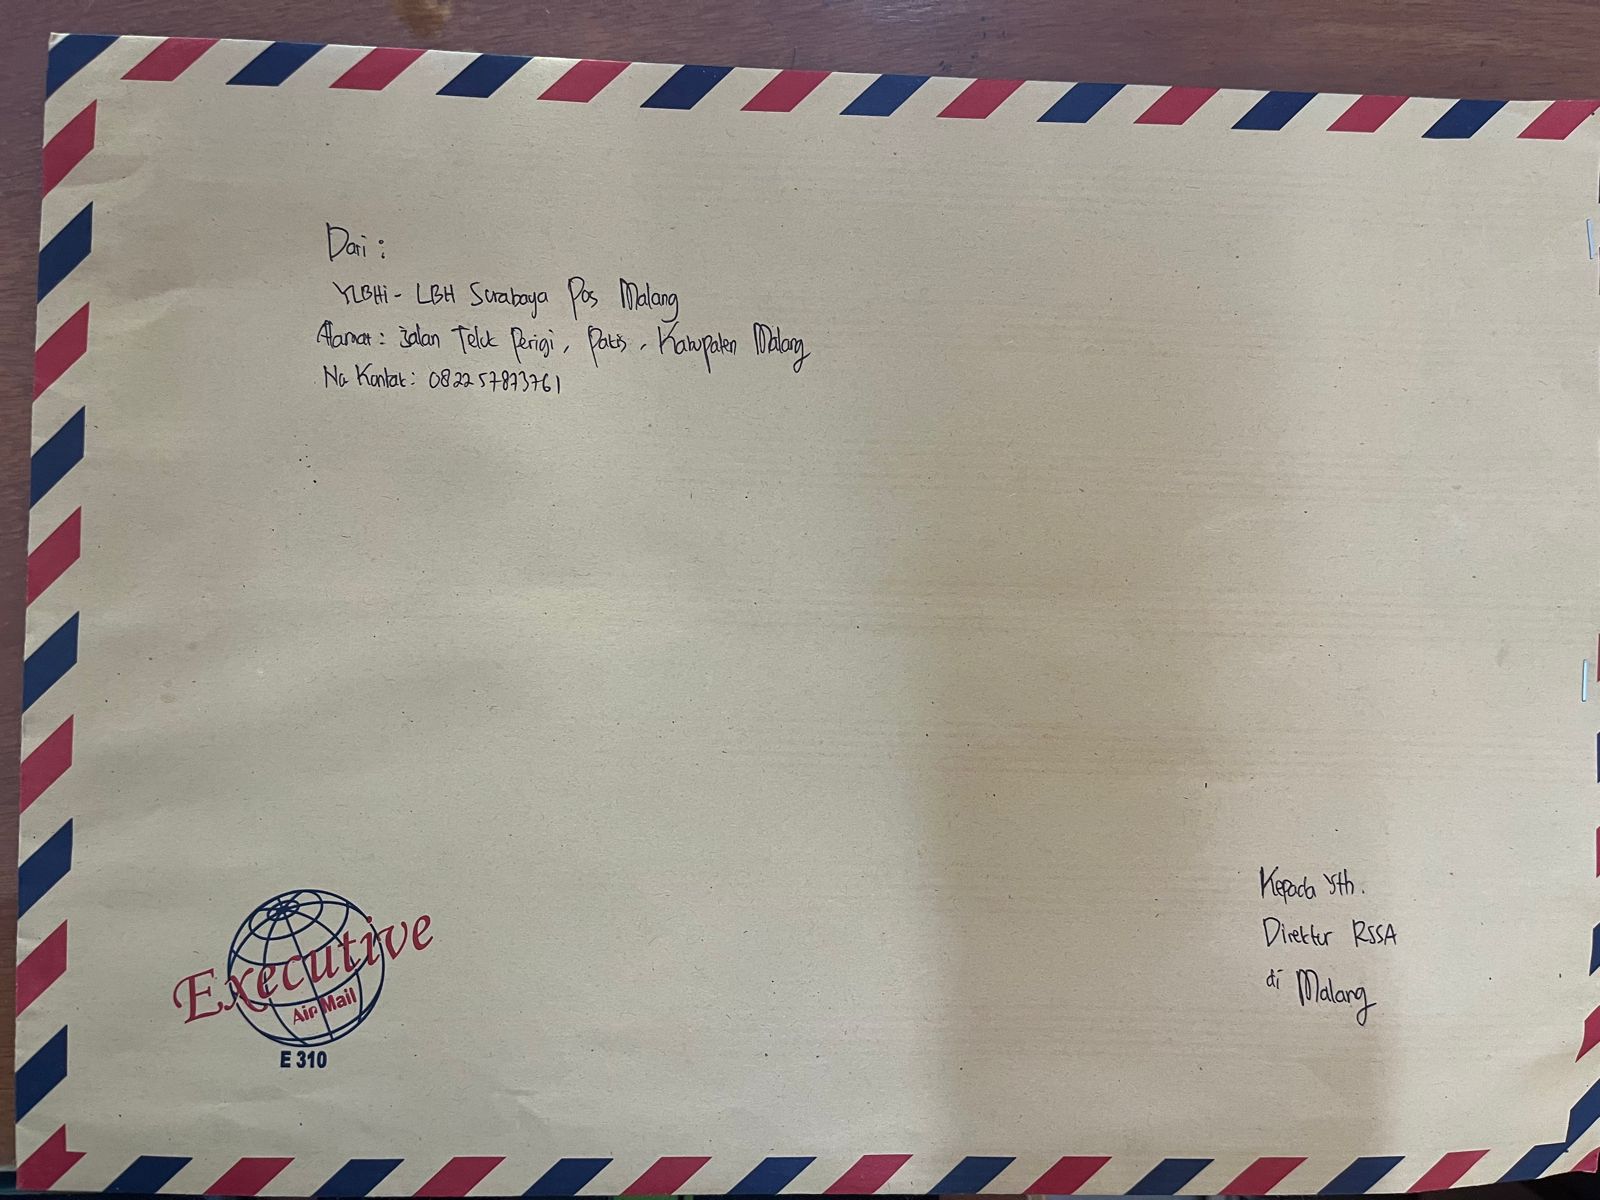 Dari :
YLBHi - LBH Surabaya Pos Malang
Alamat : Jalan Teluk Perigi, Pakis, Kabupaten Malang
No Kontak : 082257873761
Executive
Air Mail
E 310
Kepada Yth.
Direktur RSSA
di Malang